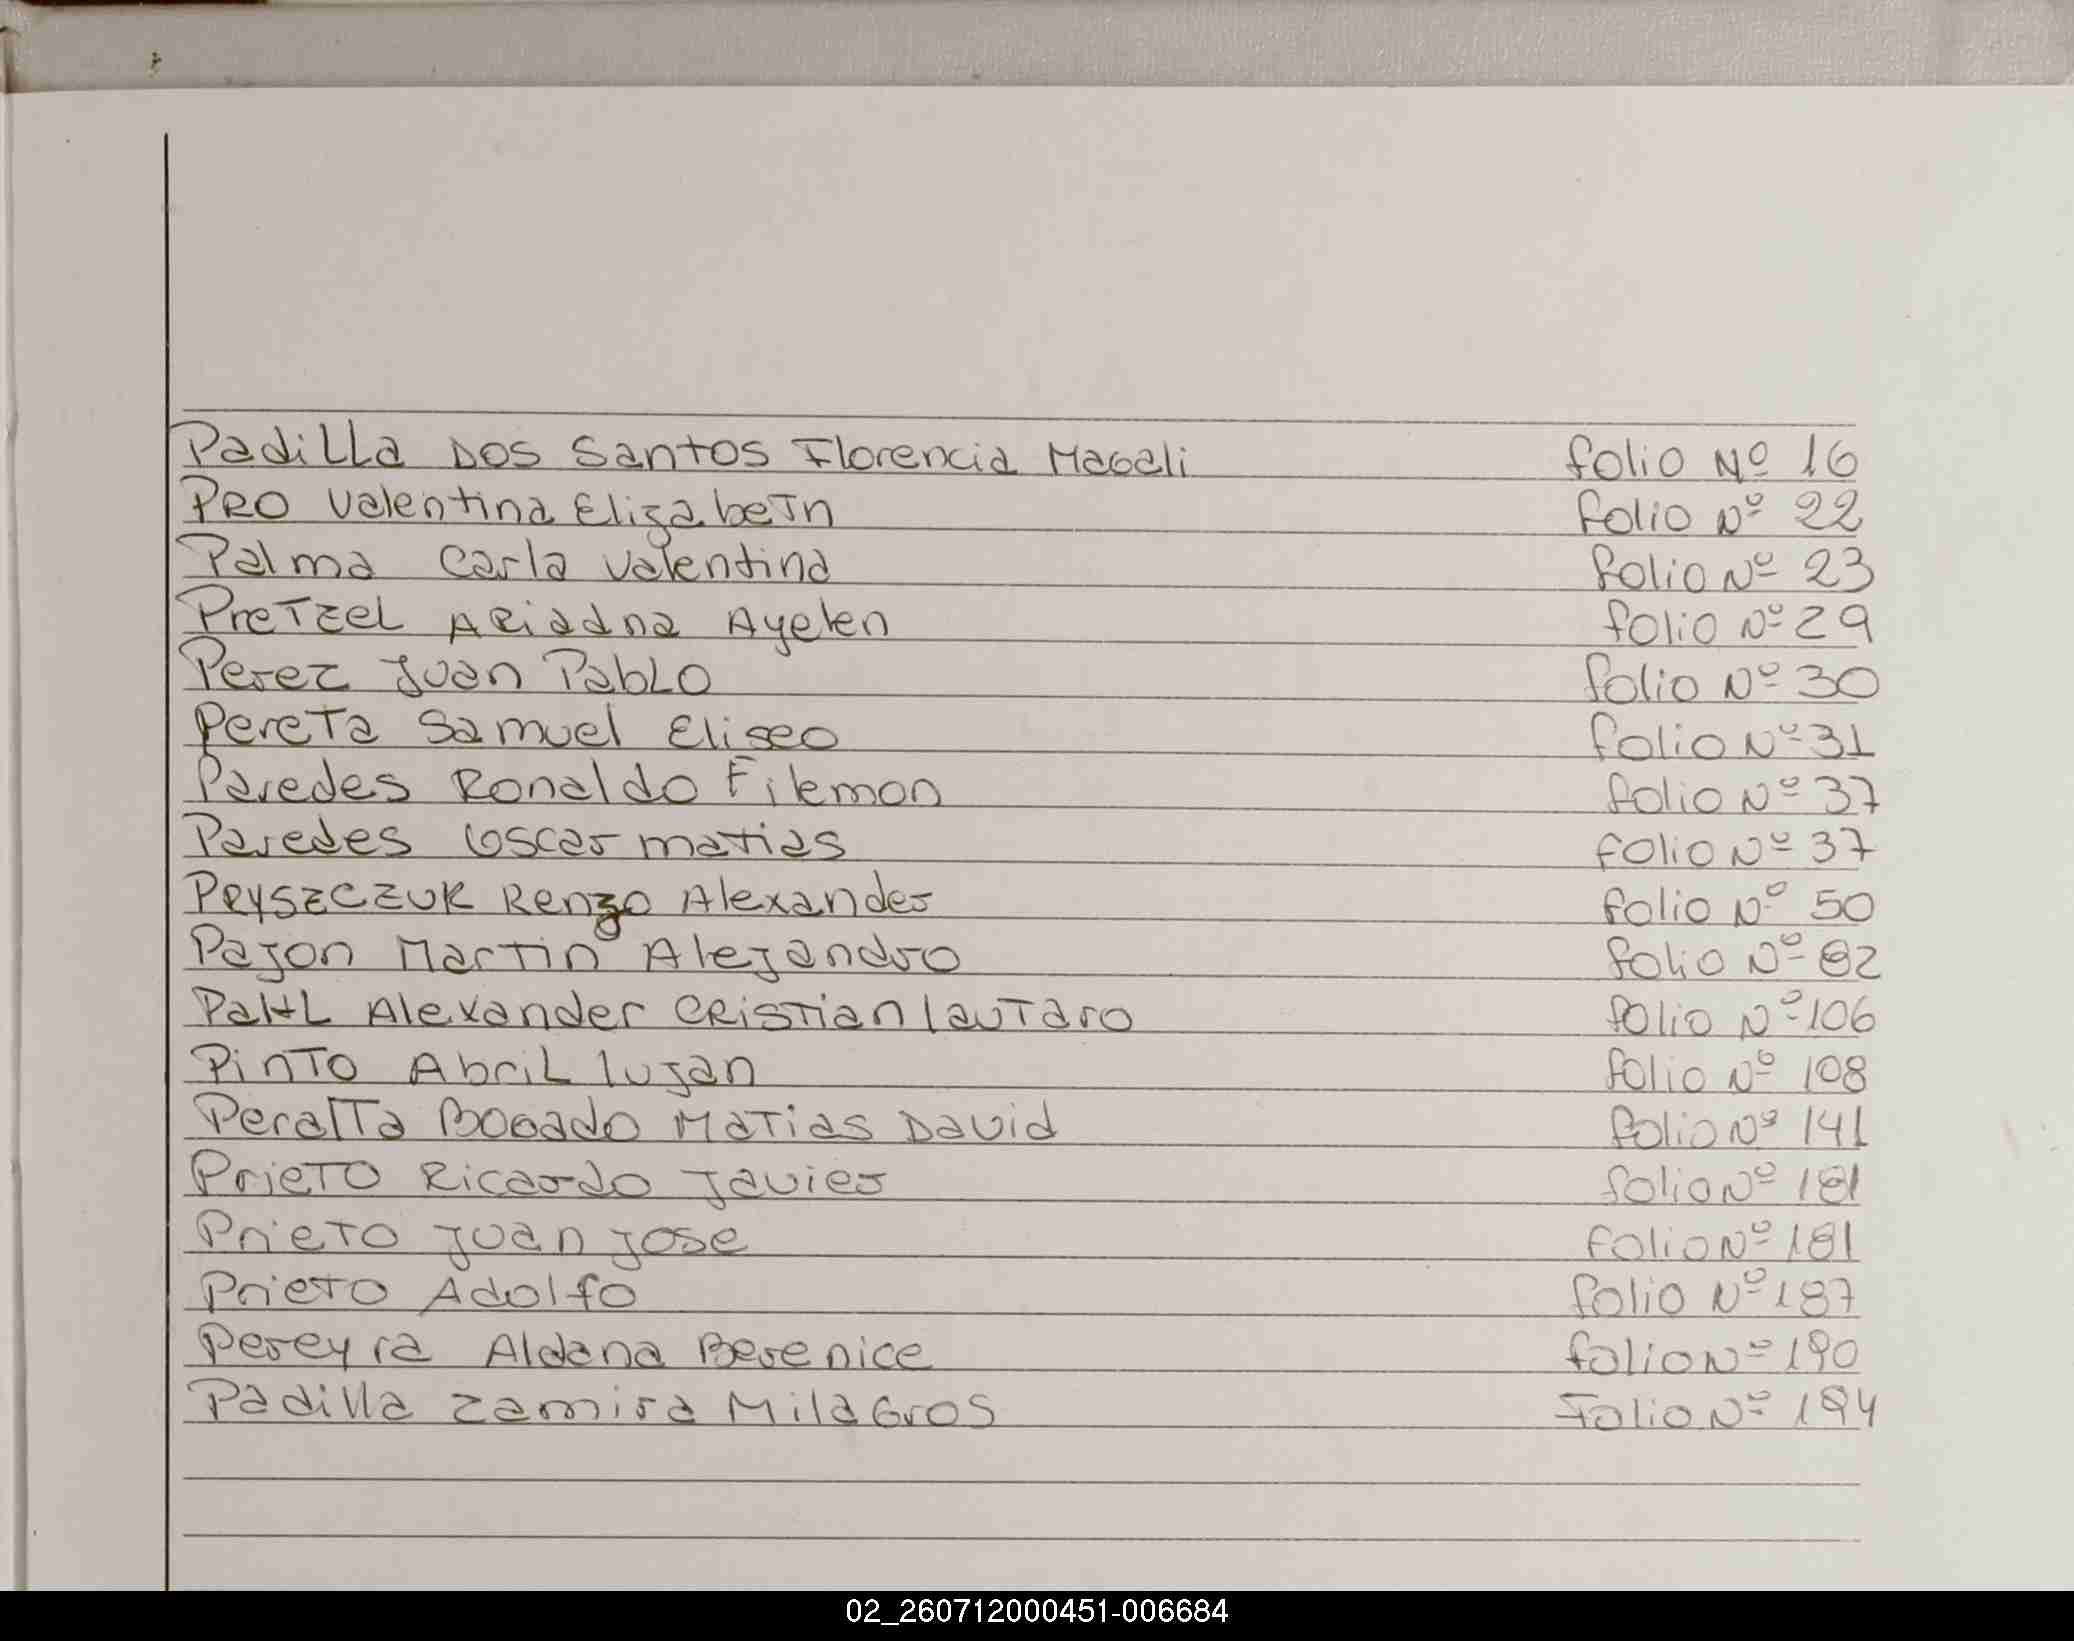 Padilla Dos Santos Florencia Magali folio Nº 16
PRO Valentina Elizabeth folio Nº 22
Palma Carla Valentina folio Nº 23
Pretzel Ariadna Ayelen folio Nº 29
Perez Juan Pablo folio Nº 30
Pereta Samuel Eliseo folio Nº 31
Paredes Ronaldo Filemon folio Nº 37
Paredes Oscar Matias folio Nº 37
PRYSZCZUK Renzo Alexander folio Nº 50
Pajon Martin Alejandro folio Nº 82
PaHL Alexander Cristian lautaro folio Nº 106
Pinto Abril lujan folio Nº 108
Peralta Bogado Matias David folio Nº 141
Prieto Ricardo Javier folio Nº 181
Prieto Juan Jose folio Nº 181
Prieto Adolfo folio Nº 187
Pereyra Aldana Berenice folio Nº 190
Padilla Zamira Milagros Folio Nº 194
02_260712000451-006684